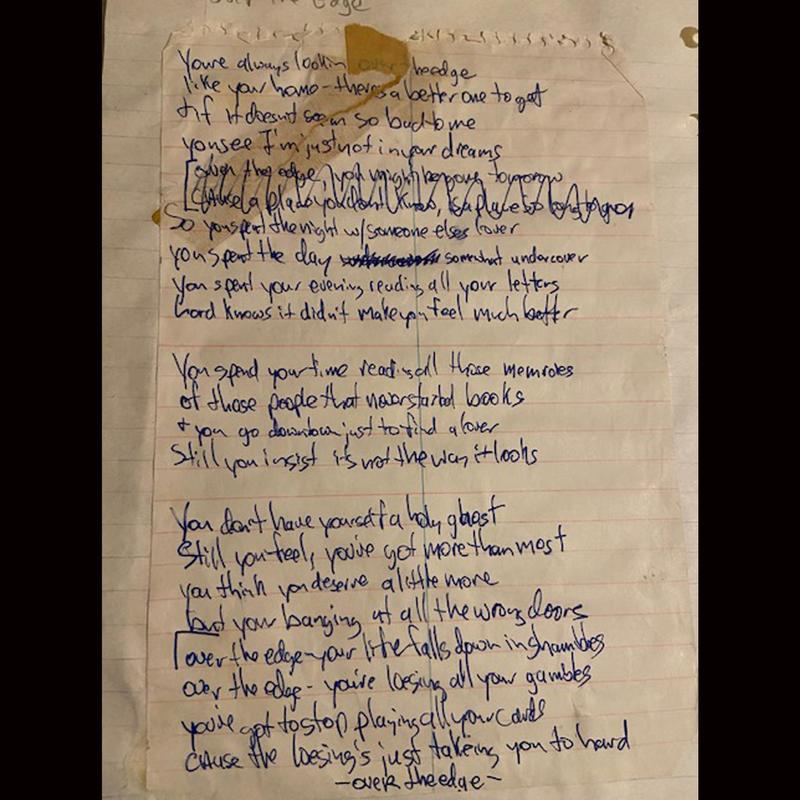 over the edge
Youre always lookin over theedge
like your home - theres a better one to get
+ if it doesnt seem so bad to me
you see I'm just not in your dreams
[over the edge, you might be gone tomorrow
cause a place you don't know, is a place to
So you spent the night w/ someone elses lover
you spent the day somewhat undercover
You spent your evening reading all your letters
Lord knows it didn't make you feel much better
You spend your time reading all those memroies
of those people that never started books
+ you go downtown just to find a lover
Still you insist its not the way it looks
You don't have yourself a holy ghost
Still you feel, you've got more than most
you think you deserve a little more
but your banging at all the wrong doors
[over the edge - your life falls down in shambles
over the edge - you're loesing all your gambles
you've got to stop playing all your cards
cause the loesing's just takeing you to hard
- over the edge -